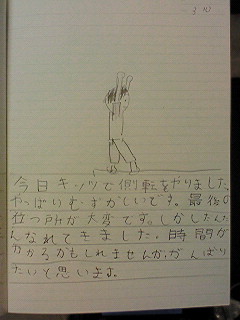 3.10
今日キッツで側転をやりました。
やっぱいむずかしいです。最後の
立つ所が大変です。しかしだんだ
んなれてきました。時間が
かかるかもしれませんが、がんばり
たいと思います。